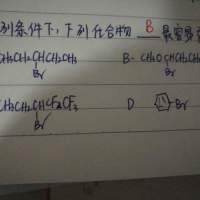 列条件下,下列化合物 B 最容易
CH₃CH₂CHCH₂CH₃ B- CH₃OCHCH₂CH
Br Br
CH₃CH₂CHCF₂CF₃ D -Br
Br